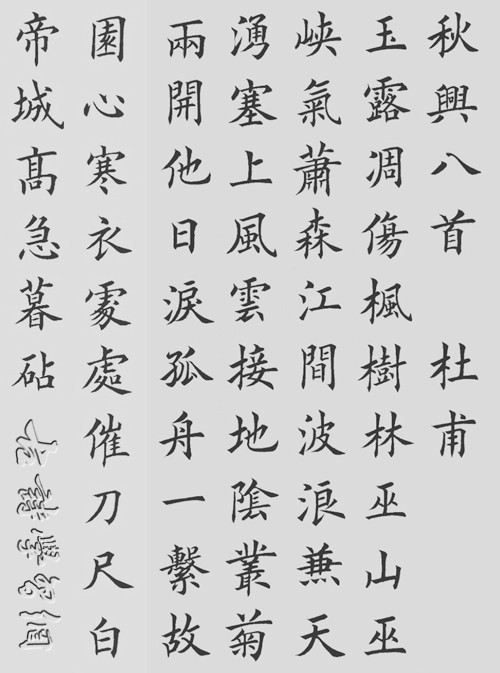 秋興八首 杜甫
玉露凋傷楓樹林巫山巫
峽氣蕭森江間波浪兼天
湧塞上風雲接地陰叢菊
兩開他日淚孤舟一繫故
園心寒衣處處催刀尺白
帝城髙急暮砧